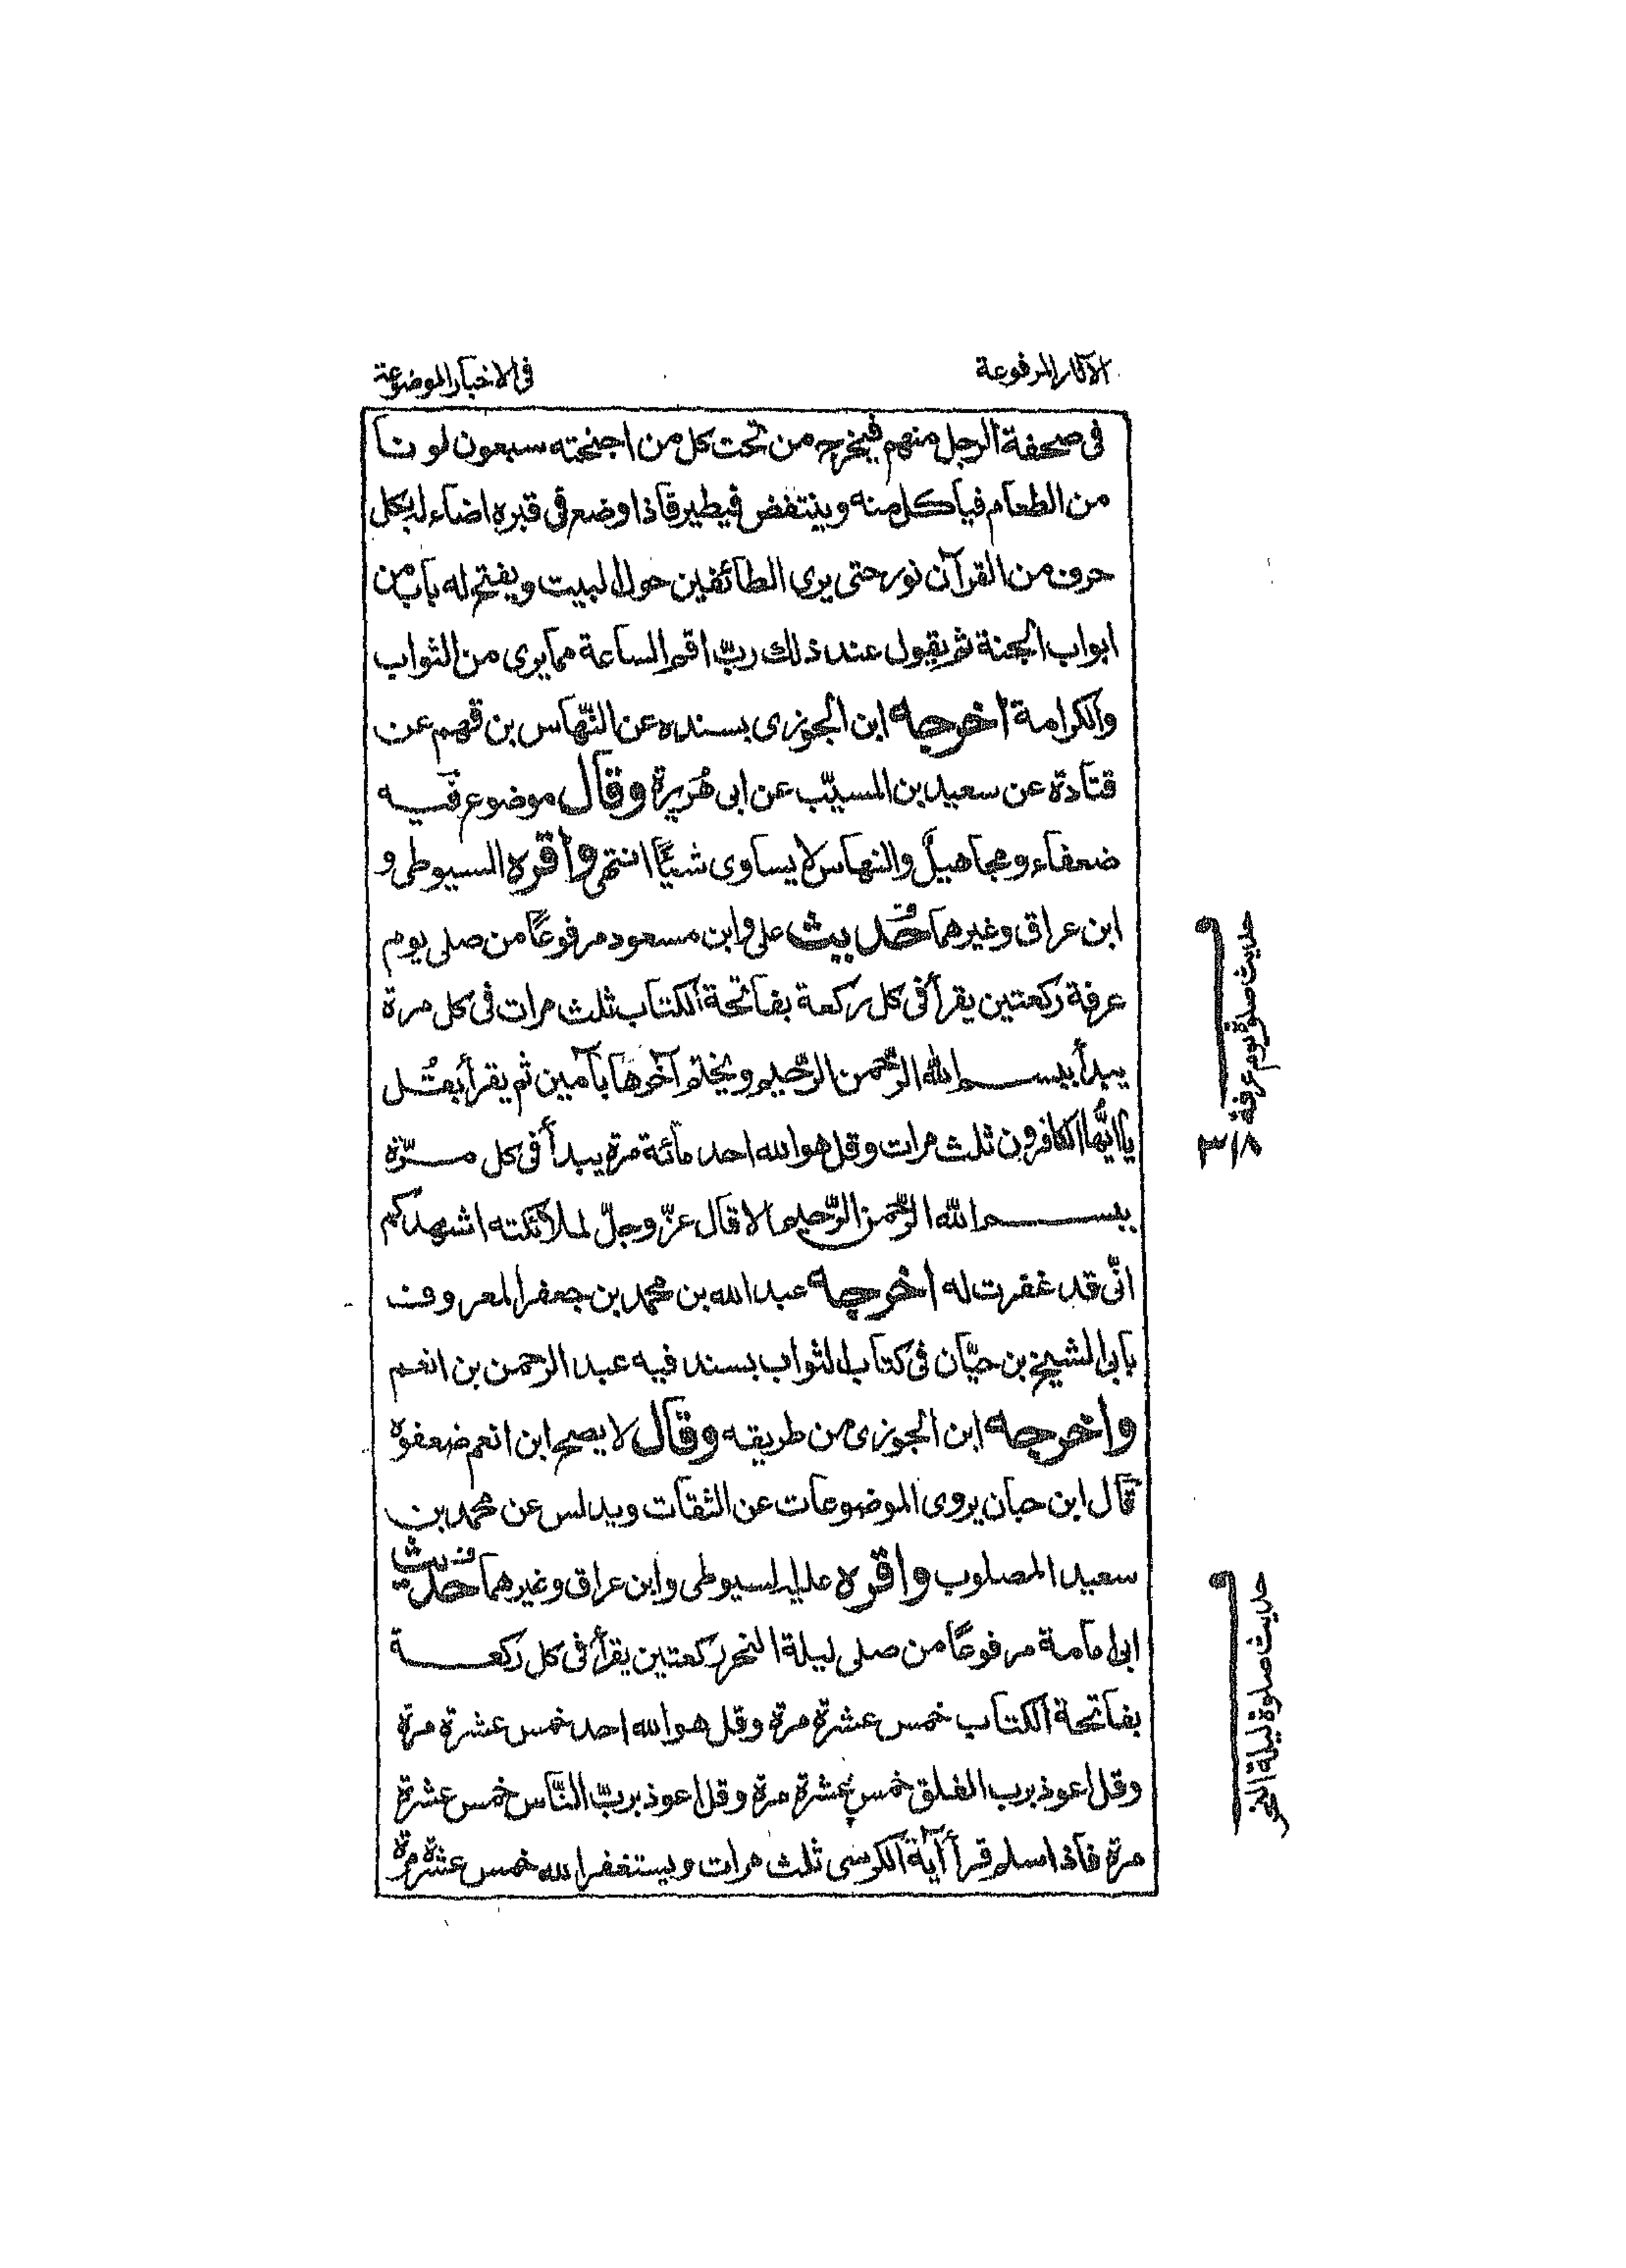 الآثار المرفوعة
فى الاخبار الموضوعة
فى صحفة الرجل منهم فيخرج من تحت كل من اجنحته سبعون لونا
من الطعام فياكل منه وينتفض فيطير فاذا وضع فى قبره اضاء له بكل
حرف من القرآن نور حتى يرى الطائفين حول البيت ويفتح له باب من
ابواب الجنة ثم يقول عند ذلك ربّ اقم الساعة مما يرى من الثواب
والكرامة اخرجه ابن الجوزى بسنده عن النّهاس بن قهم عن
قتادة عن سعيد بن المسيّب عن ابى هُريرة وقال موضوع فيه
ضعفاء ومجاهيل والنهاس لا يساوى شيئًا انتهى واقره السيوطى و
ابن عراق وغيرهما حديث على وابن مسعود مرفوعًا من صلى يوم
عرفة ركعتين يقرأ فى كل ركعة بفاتحة الكتاب ثلث مرات فى كل مرة
يبدأ ببسم الله الرّحمن الرّحيم ويختم آخرها بآمين ثم يقرأ بقُل
يا ايّها الكافرون ثلث مرات وقل هو الله احد مائة مرة يبدأ فى كل مرّة
ببسم الله الرّحمن الرّحيم الا قال عزّ وجلّ لملائكته اشهدكم
انّى قد غفرت له اخرجه عبد الله بن محمد بن جعفر المعروف
بابى الشيخ بن حيّان فى كتاب الثواب بسند فيه عبد الرحمن بن انعم
واخرجه ابن الجوزى من طريقه وقال لا يصح ابن انعم ضعفوه
قال ابن حبان يروى الموضوعات عن الثقات ويدلس عن محمد بن
سعيد المصلوب واقره عليه السيوطى وابن عراق وغيرهما حديث
ابى امامة مرفوعًا من صلى ليلة النحر ركعتين يقرأ فى كل ركعة
بفاتحة الكتاب خمس عشرة مرة وقل هو الله احد خمس عشرة مرة
وقل اعوذ برب الفلق خمس عشرة مرة وقل اعوذ بربّ النّاس خمس عشرة
مرة فاذا سلم قرأ آية الكرسى ثلث مرات ويستغفر الله خمس عشرة مرة
حديث صلوة يوم عرفة
حديث صلوة ليلة النحر